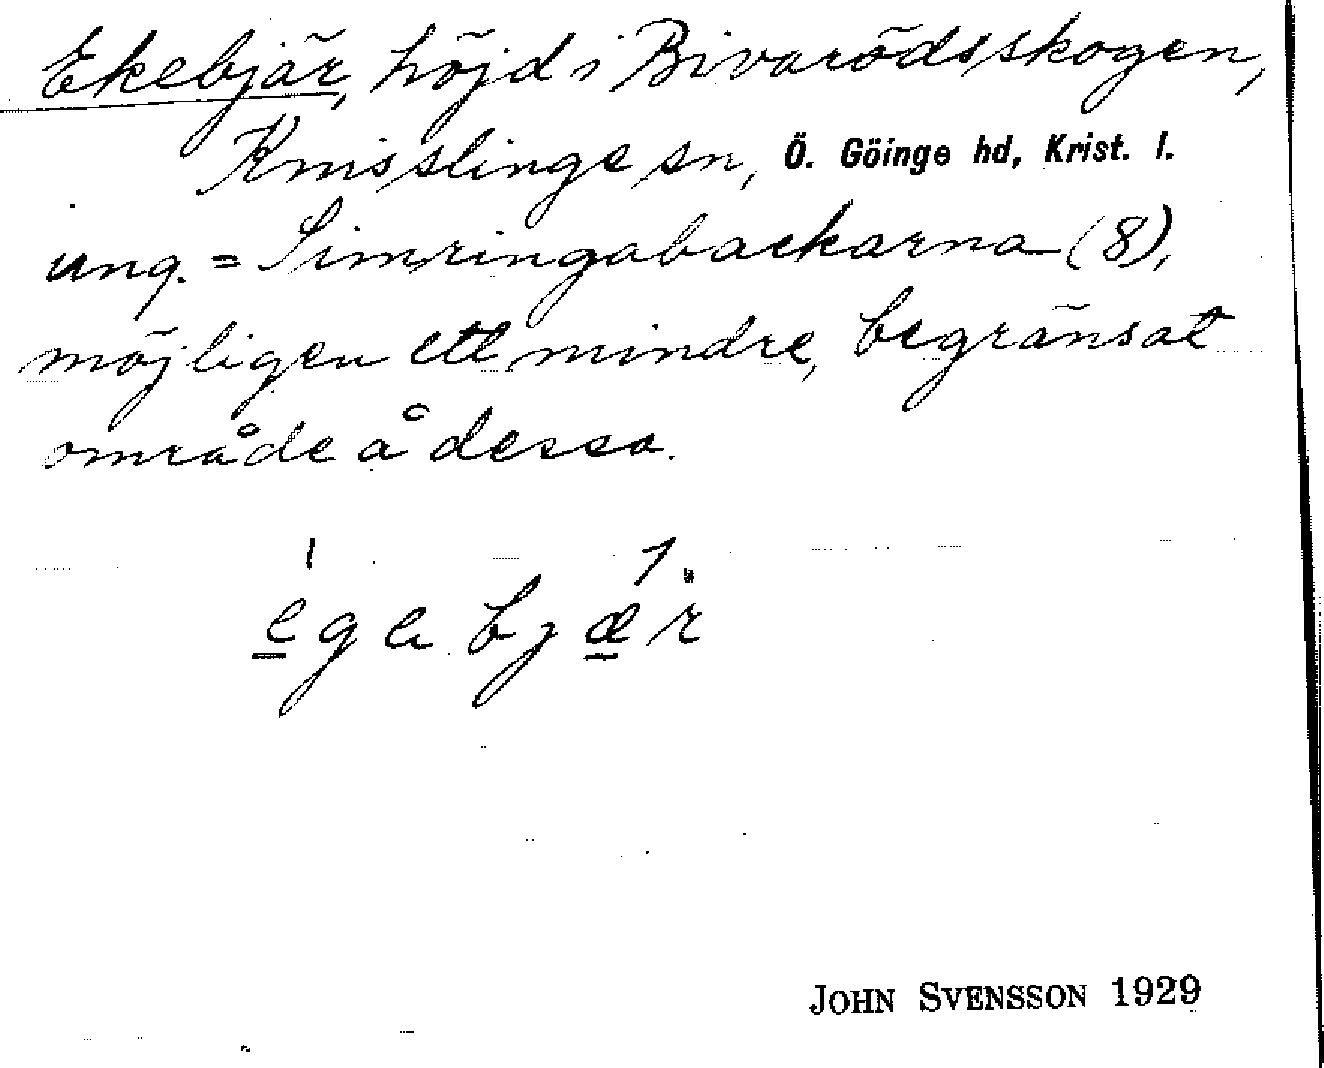 Ekebjär, höjd i Bivarödsskogen,
Knisslinge sn, Ö. Göinge hd, Krist. l.
ung. = Simringabackarna (8),
möjligen ett mindre, begränsat
område å dessa.
JOHN SVENSSON 1929